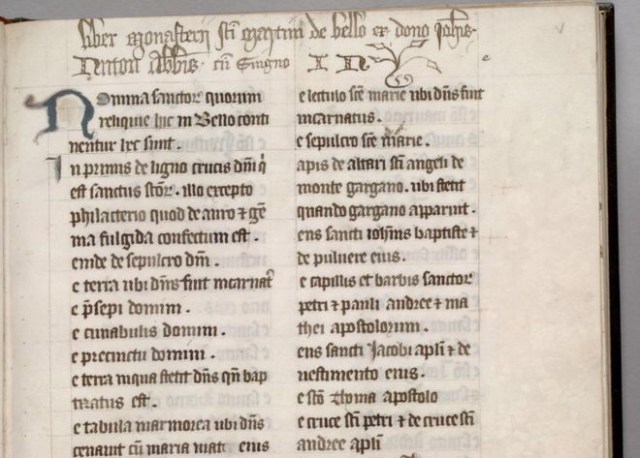 Liber monasterij sc̄i Martini de bello ex dono Joh̄is
Abb̄is. cū Signo I N
Nomina sanctoꝝ quorum
reliquie hic in Bello conti
nentur hec sunt.
In primis de ligno crucis dn̄i q̇
est sanctus sc̄oꝝ. illo excepto
philacterio quod de auro ⁊ gē
ma fulgida confectum est.
einde de sepulcro dn̄i.
e terra ubi dn̄s fuit incarnat᷒
e p̄sepi domini.
e cunabulis domini.
e precinctu domini.
e terra inqua stetit dn̄s qn̄ bap
tizatus est.
e tabula marmorea ubi dn̄s
cenauit cū maria mat̄ eius
e lectulo sc̄e marie ubi dn̄s fuit
incarnatus.
e sepulcro sc̄e marie.
apis de altari sc̄i angeli de
monte gargano. ubi stetit
quando gargano apparuit.
ens sancti ioh̄nis baptiste ⁊
de puluere eius.
e capillis et barbis sanctoꝝ
petri ⁊ pauli andree ⁊ ma
thei apostolorum.
ens sancti Jacobi apl̄i ⁊ de
uestimento eius.
e sc̄o Thoma apostolo
e cruce sc̄i petri ⁊ de cruce sc̄i
andree apl̄i